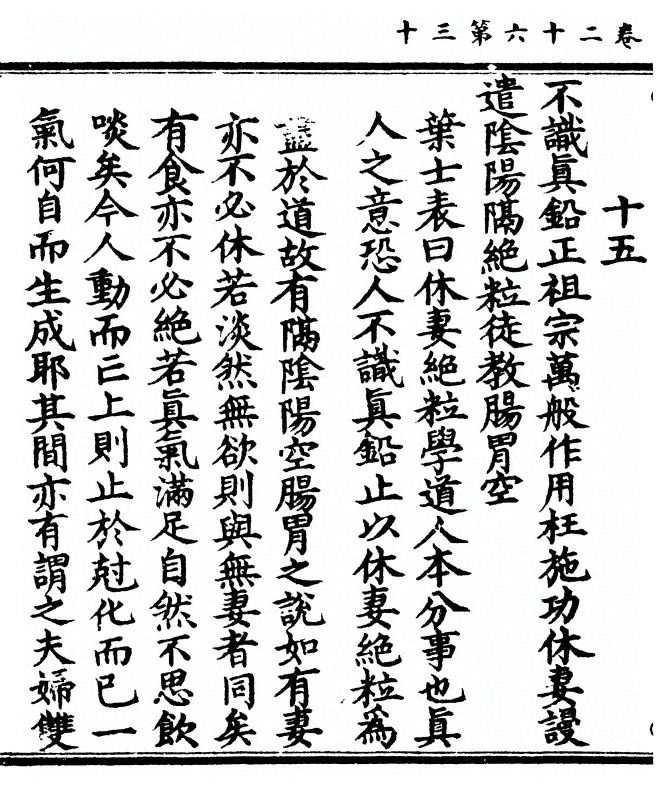 卷二十六第三十
十五
不識眞鉛正祖宗萬般作用枉施功休妻謾
遣陰陽隔絶粒徒教腸胃空
葉士表曰休妻絶粒學道人本分事也眞
人之意恐人不識眞鉛止以休妻絶粒爲
盡於道故有隔陰陽空腸胃之說如有妻
亦不必休若淡然無欲則與無妻者同矣
有食亦不必絶若眞氣滿足自然不思飲
啖矣今人動而上則止於尅化而已一
氣何自而生成耶其間亦有謂之夫婦雙